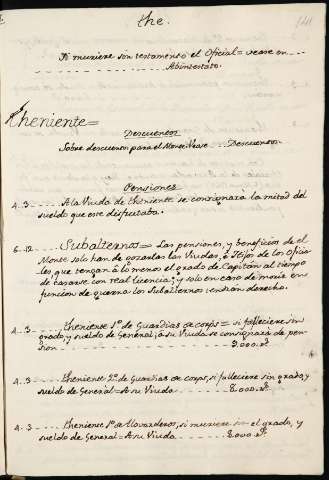 the.
141
Si muriese sin testamento el Oficial = vease en
Abintestato.
Theniente =
Descuentos
Sobre descuentos para el Monte Vease . . . Descuentos.
Pensiones
4. 3. A la Viuda de Theniente se consignará la mitad del
sueldo que este disfrutaba.
6. 12. Subalternos = Las pensiones, y beneficios de el
Monte solo han de gozarlas las Viudas, o Hijos de los Oficia
les, que tengan á lo menos el grado de Capitán al tiempo
de casarse con real licencia; y solo en caso de morir en
funcion de guerra los Subalternos tendrán derecho.
4. 3. Theniente 1º de Guardias de corps = si falleciere sin
grado, y sueldo de General, á su Viuda se consignará de pen
sion 9.000 rs.
4. 3. Theniente 2º de Guardias de corps, si falleciere sin grado, y
sueldo de General = A su Viuda 8.000 rs.
4. 3. Theniente 1º de Alavarderos, si muriere sin el grado, y
sueldo de General = A su Viuda 8.000 rs.